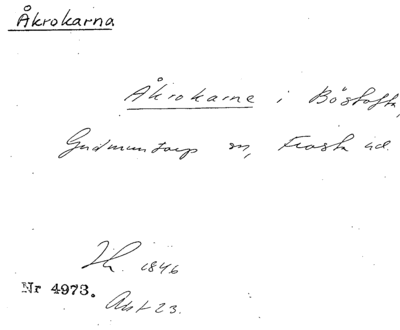 Åkrokarna
Åkrokarne i Böstofta,
Gudmuntorp sn, Frosta hd.
Jh. 1846
Nr 4973.
Akt 23.